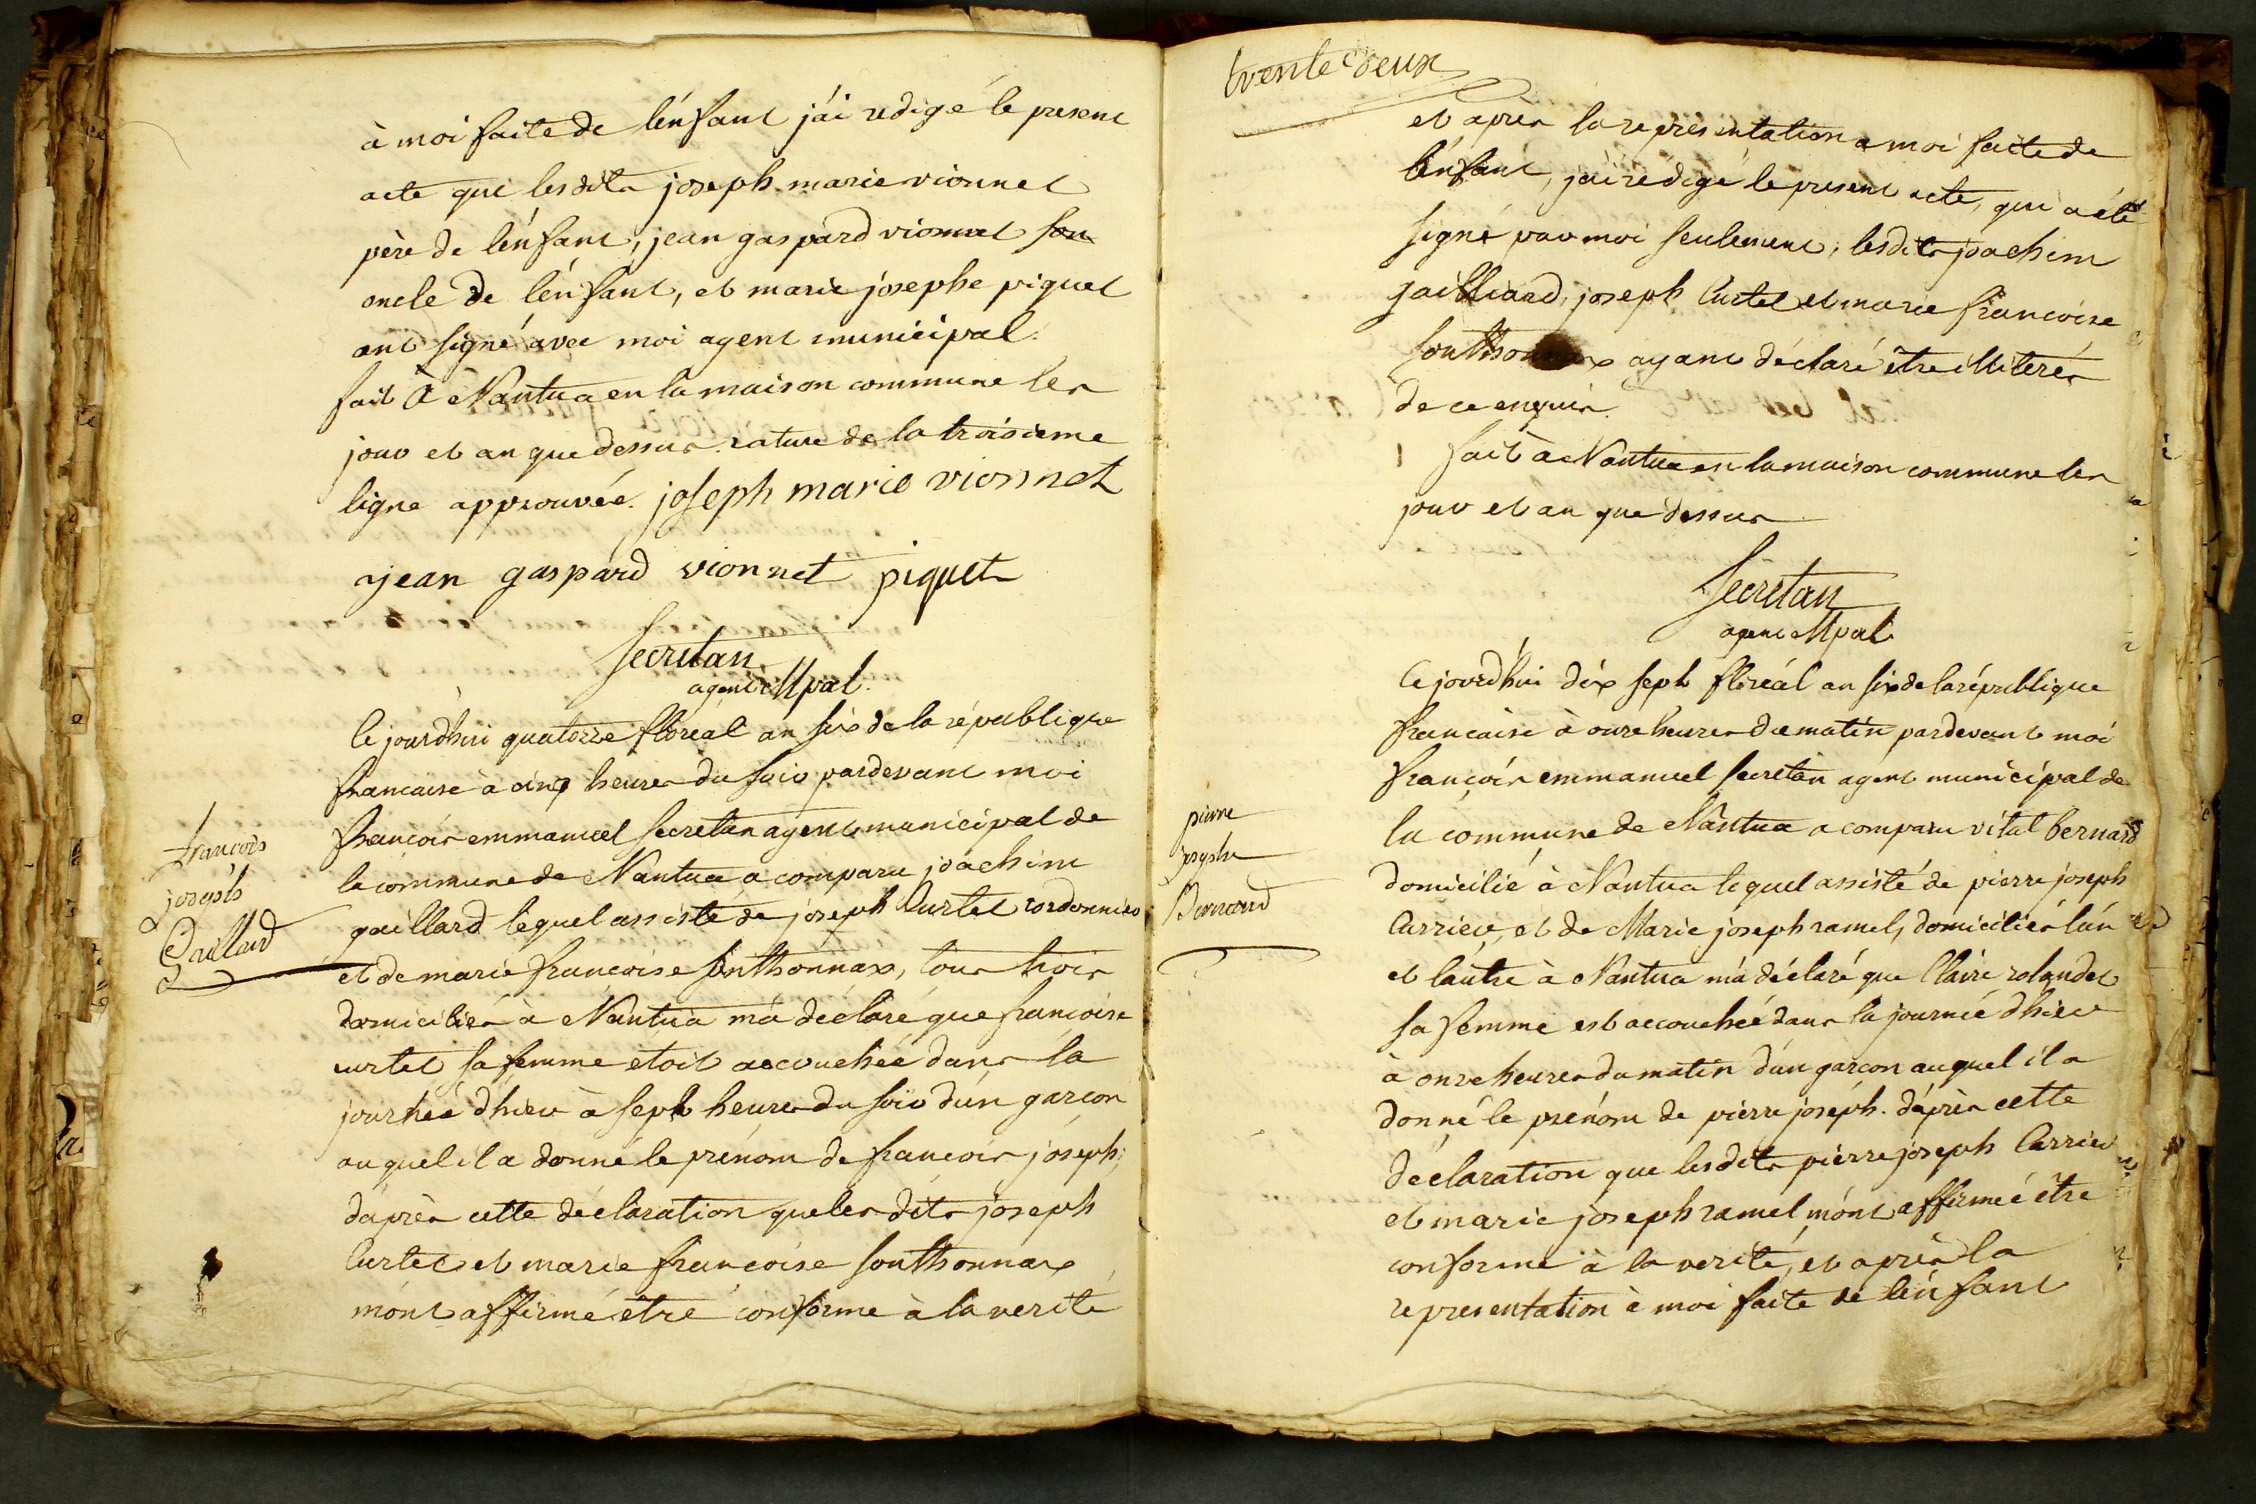 à moi faite de lénfant jái redigé le present
acte que lesdits joseph marie vionnet
père de lénfant, jean gaspard vionnet son
oncle de lénfant, et marie josephe piquet
ont signé avec moi agent municipal.
fait à Nantua en la maison commune les
jour et an que dessus. rature de la troisieme
ligne approuvée. joseph marie vionnet
jean gaspard vionnet piquet
Secretan
agent Mpal.
Cejourdhui quatorze floréal an six de la république
francaise à cinq heures du soir pardevant moi
françois emmanuel Secretan agent municipal de
la commune de Nantua a comparu joachim
gaillard lequel assisté de joseph Curtet cordonnier
et de marie francoise Sonthonnax, tous trois
domiciliés à Nantua má déclaré que francoise
curtet sa femme etoit accouchée dans la
journée dhier à sept heures du soir dún garcon
auquel il a donné le prénom de francois joseph;
dáprès cette déclaration que les dits joseph
Curtet et marie francoise Sonthonnax
mónt affirmé être conforme à la verité
francois
joseph
Gaillard
trente deux
et après la representation a moi faite de
lénfant, jái rédigé le present acte, qui a été
signé par moi seulement, lesdits joachim
gailliard, joseph Curtet et marie francoise
Sonthonnax ayant déclaré être illiterés
de ce enquis.
fait à Nantua en la maison commune les
jour et an que dessus
Secretan
agent Mpal
Cejourdhui dix sept floréal an six de la république
francaise à onze heures du matin pardevant moi
françois emmanuel Secretan agent municipal de
la commune de Nantua a comparu vital bernard
domicilié à Nantua lequel assisté de pierre joseph
Carrier, et de Marie joseph ramel, domiciliés lún
et láutre à Nantua má déclaré que Claire rolandet
sa femme est accouchée dans la journée dhier
à onze heures du matin dún garcon auquel il a
donné le prénom de pierre joseph. dáprès cette
déclaration que lesdits pierre joseph Carrier
et marie joseph ramel mónt affirmé être
conforme à la verité, et après la
representation à moi faite de lénfant
pierre
joseph
Bernard